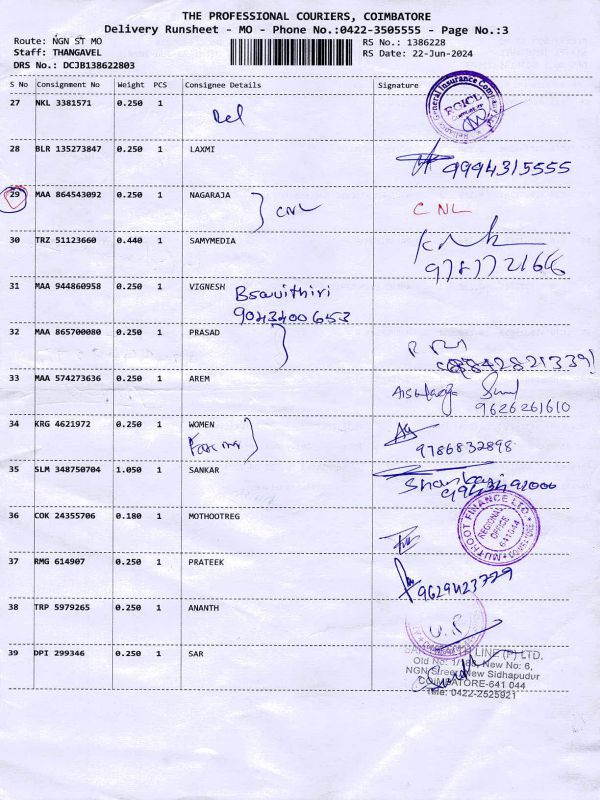 THE PROFESSIONAL COURIERS, COIMBATORE
Delivery Runsheet - MO - Phone No.:0422-3505555 - Page No.:3
Route: NGN ST MO
Staff: THANGAVEL
DRS No.: DCJB138622803
RS No.: 1386228
RS Date: 22-Jun-2024
S No Consignment No Weight PCS Consignee Details Signature
27 NKL 3381571 0.250 1 Del
28 BLR 135273847 0.250 1 LAXMI 9994315555
29 MAA 864543092 0.250 1 NAGARAJA CNL C NL
30 TRZ 51123660 0.440 1 SAMYMEDIA
9787721666
31 MAA 944860958 0.250 1 VIGNESH Bsavithiri
9043400653
32 MAA 865700080 0.250 1 PRASAD
33 MAA 574273636 0.250 1 AREM
9626261610
34 KRG 4621972 0.250 1 WOMEN
9786832898
35 SLM 348750704 1.050 1 SANKAR
36 COK 24355706 0.180 1 MOTHOOTREG
MUTHOOT FINANCE LTD.
REGIONAL
OFFICE
641044
37 RMG 614907 0.250 1 PRATEEK
9629423729
38 TRP 5979265 0.250 1 ANANTH
39 DPI 299346 0.250 1 SAR
LINE (P) LTD.
New No: 6,
NGN Street, New Sidhapudur
COIMBATORE-641 044
Tele: 0422-2525921